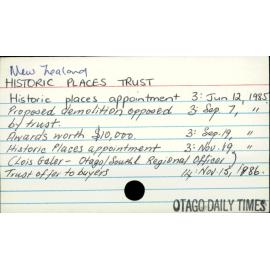 New Zealand
HISTORIC PLACES TRUST
Historic places appointment 3: Jun 12, 1985
Proposed demolition opposed 3: Sep. 7, "
by trust.
Awards worth $10,000. 3: Sep. 19, "
Historic Places appointment 3: Nov. 19, "
(Lois Galer - Otago/Southl Regional Officer)
Trust offer to buyers 14: Nov. 15, 1986.
OTAGO DAILY TIMES